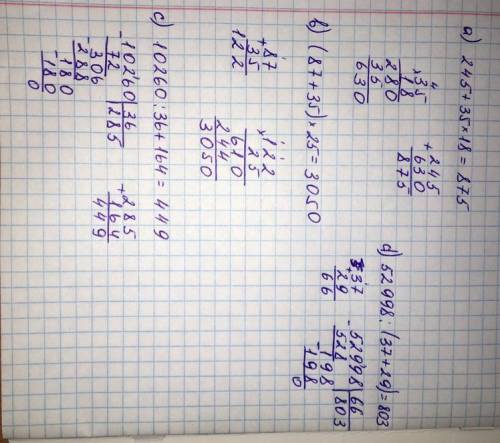 a) 245+35×18=875
4
×35
18
280
35
630
+245
630
875
b) (87+35)×25=3050
+87
35
122
×122
25
610
244
3050
c) 10260:36+164=449
-10260|36
72 285
-306
288
-180
180
0
+285
164
449
d) 52998:(37+29)=803
+37
29
66
-52998|66
528 803
-198
198
0